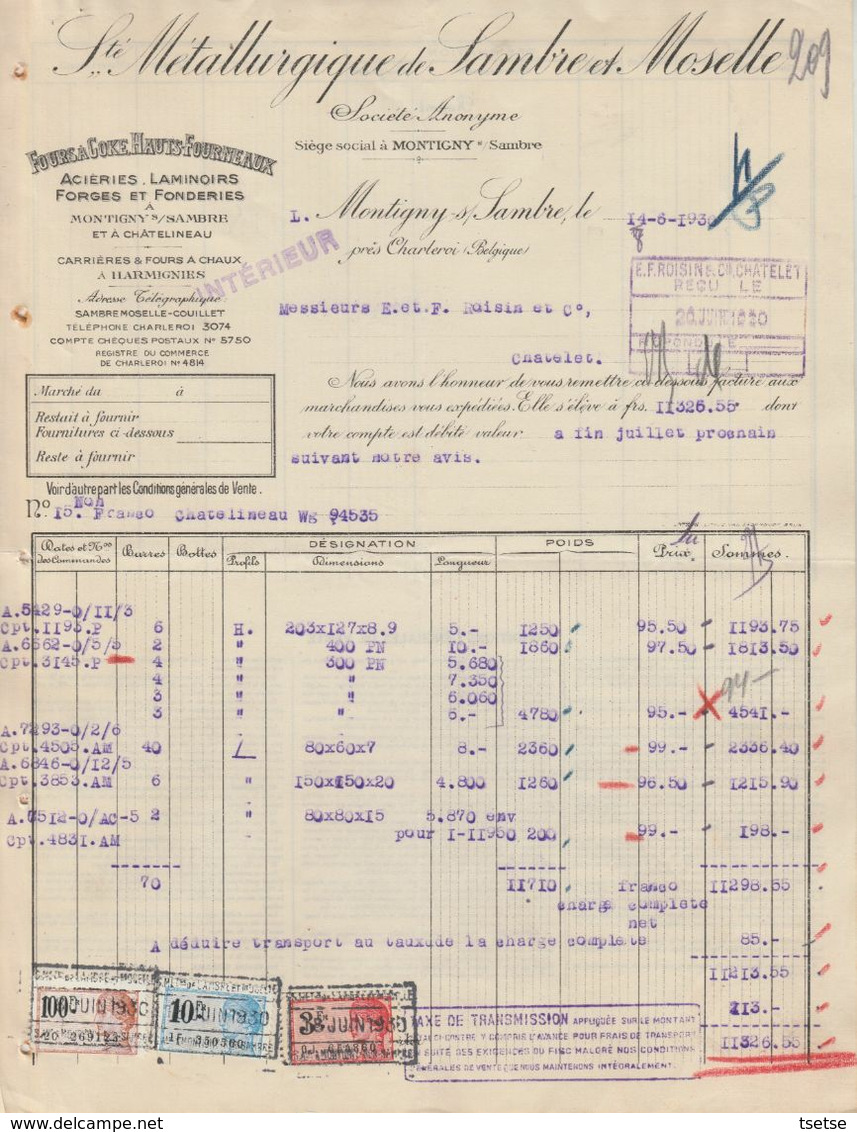 Sté Métallurgique de Sambre et Moselle
209
Société Anonyme
Siège social à MONTIGNY s/Sambre
FOURS À COKE, HAUTS-FOURNEAUX
ACIÉRIES, LAMINOIRS
FORGES ET FONDERIES
À
MONTIGNY S/SAMBRE
ET À CHÂTELINEAU
CARRIÈRES & FOURS À CHAUX
À HARMIGNIES
Adresse Télégraphique:
SAMBREMOSELLE-COUILLET
TÉLÉPHONE CHARLEROI 3074
COMPTE CHÈQUES POSTAUX N° 5750
REGISTRE DU COMMERCE
DE CHARLEROI N° 4814
INTÉRIEUR
L. Montigny-s/Sambre, le 14-6-1930
près Charleroi (Belgique)
E.F. ROISIN & Cie, CHATELET
REÇU LE
20 JUIN 1930
RÉPONDU LE
Messieurs E.et.F. Roisin et C°,
Chatelet.
Nous avons l'honneur de vous remettre ci-dessous facture aux
marchandises vous expédiées. Elle s'élève à frs. II326.55 dont
votre compte est débité valeur a fin juillet prochain
suivant notre avis.
Marché du à
Restait à fournir
Fournitures ci-dessous
Reste à fournir
Voir d'autre part les Conditions générales de Vente.
N° 15. Noh Franco Chatelineau Wg 94535
Dates et Nos des Commandes Barres Bottes Profils DÉSIGNATION Dimensions Longueur POIDS Prix Sommes.
A.5429-0/II/3
Cpt.II93.P 6 H. 203xI27x8.9 5.- I250 95.50 II93.75
A.6562-0/5/5 2 " 400 PN I0.- I860 97.50 I8I3.50
Cpt.3I45.P 4 " 300 PN 5.680
4 " " 7.350
3 " " 6.060
3 " " 5.- 4780 95.- 454I.-
94-
A.7293-0/2/6
Cpt.4505.AM 40 L 80x60x7 8.- 2360 99.- 2336.40
A.6846-0/I2/5
Cpt.3853.AM 6 " I50xI50x20 4.800 I260 96.50 I2I5.90
A.75I2-0/AC-5 2 " 80x80xI5 5.870 env
Cpt.483I.AM pour I-II950 200 99.- I98.-
70 II7I0 franco II298.55
charge complete
net
A déduire transport au taux de la charge complete 85.-
II2I3.55
II3.-
II326.55
100 JUIN 1930
10 JUIN 1930
3 JUIN 1930
TAXE DE TRANSMISSION APPLIQUÉE SUR LE MONTANT
Y COMPRIS L'AVANCE POUR FRAIS DE TRANSPORT
SUITE DES EXIGENCES DU FISC MALGRÉ NOS CONDITIONS
GÉNÉRALES DE VENTE QUE NOUS MAINTENONS INTÉGRALEMENT.
tsetse